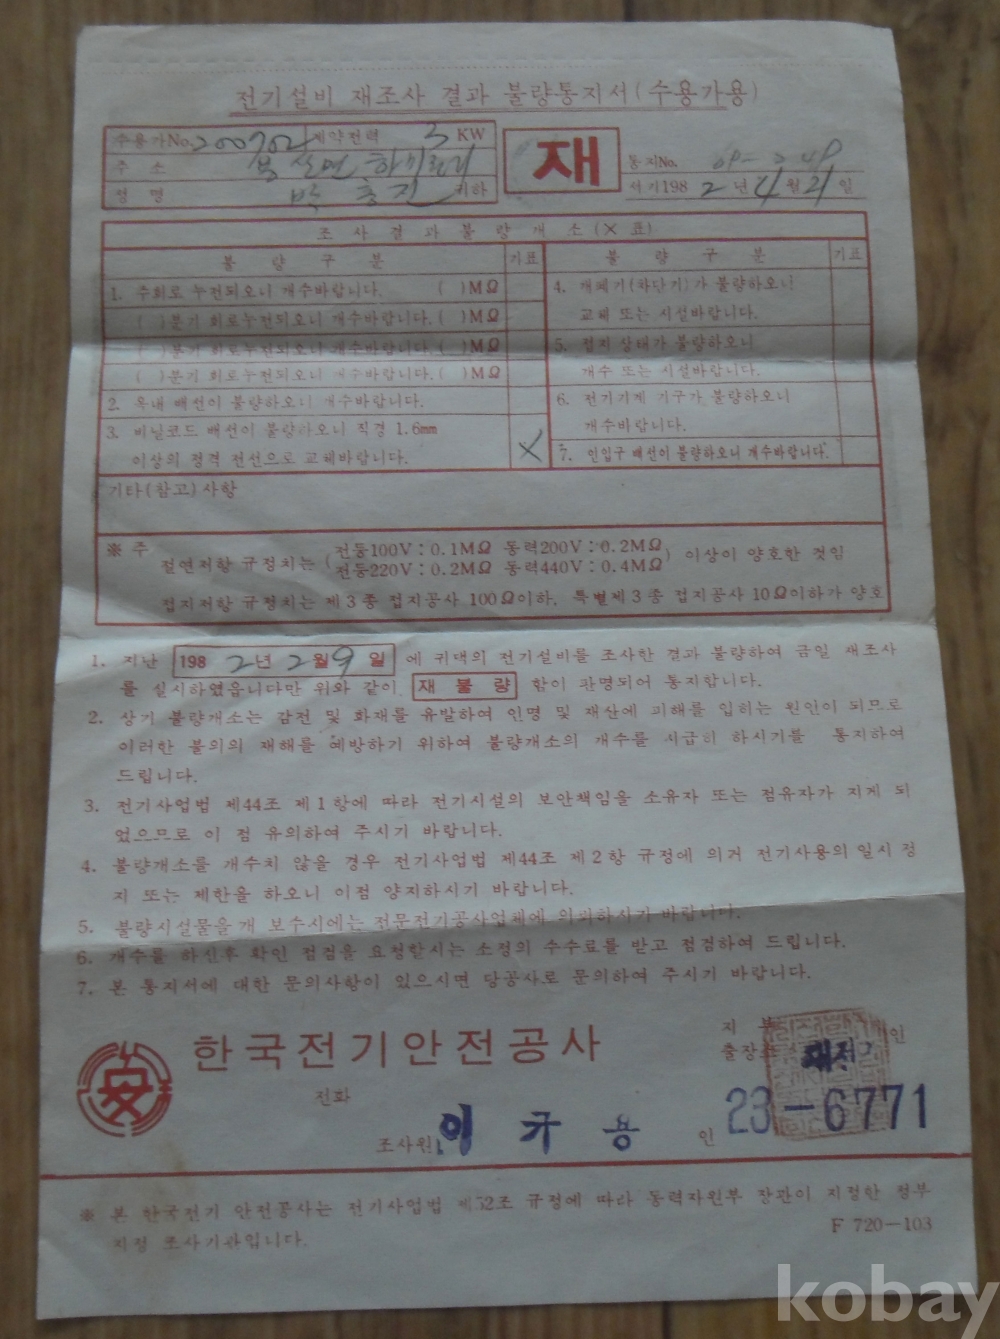 전기설비 재조사 결과 불량통지서(수용가용)
수용가No. 200702 계약전력 3 KW
주 소
성 명 박 종 진 귀하
재
통지No.
서기198 2 년 4 월 21 일
조 사 결 과 불 량 개 소 (× 표)
불 량 구 분 기표
1. 주회로 누전되오니 개수바랍니다. ( )MΩ
( )분기 회로누전되오니 개수바랍니다. ( )MΩ
( )분기 회로누전되오니 개수바랍니다. ( )MΩ
( )분기 회로누전되오니 개수바랍니다. ( )MΩ
2. 옥내 배선이 불량하오니 개수바랍니다.
3. 비닐코드 배선이 불량하오니 직경 1.6mm
이상의 정격 전선으로 교체바랍니다. ×
불 량 구 분 기표
4. 개폐기(차단기)가 불량하오니
교체 또는 시설바랍니다.
5. 접지 상태가 불량하오니
개수 또는 시설바랍니다.
6. 전기기계 기구가 불량하오니
개수바랍니다.
7. 인입구 배선이 불량하오니 개수바랍니다.
기타(참고)사항
※ 주
절연저항 규정치는 (전등100V : 0.1MΩ 동력200V : 0.2MΩ
전등220V : 0.2MΩ 동력440V : 0.4MΩ) 이상이 양호한 것임
접지저항 규정치는 제3종 접지공사 100Ω이하, 특별제3종 접지공사 10Ω이하가 양호
1. 지난 198 2년 2월 9일 에 귀댁의 전기설비를 조사한 결과 불량하여 금일 재조사
를 실시하였읍니다만 위와 같이 재 불 량 함이 판명되어 통지합니다.
2. 상기 불량개소는 감전 및 화재를 유발하여 인명 및 재산에 피해를 입히는 원인이 되므로
이러한 불의의 재해를 예방하기 위하여 불량개소의 개수를 시급히 하시기를 통지하여
드립니다.
3. 전기사업법 제44조 제1항에 따라 전기시설의 보안책임을 소유자 또는 점유자가 지게 되
었으므로 이 점 유의하여 주시기 바랍니다.
4. 불량개소를 개수치 않을 경우 전기사업법 제44조 제2항 규정에 의거 전기사용의 일시 정
지 또는 제한을 하오니 이점 양지하시기 바랍니다.
5. 불량시설물을 개 보수시에는 전문전기공사업체에 의뢰하시기 바랍니다.
6. 개수를 하신후 확인 점검을 요청할시는 소정의 수수료를 받고 점검하여 드립니다.
7. 본 통지서에 대한 문의사항이 있으시면 당공사로 문의하여 주시기 바랍니다.
安
한국전기안전공사
지 부
출장소
인
전화
23-6771
조사원 이 규 용 인
※ 본 한국전기 안전공사는 전기사업법 제52조 규정에 따라 동력자원부 장관이 지정한 정부
지정 조사기관입니다.
F 720-103
kobay